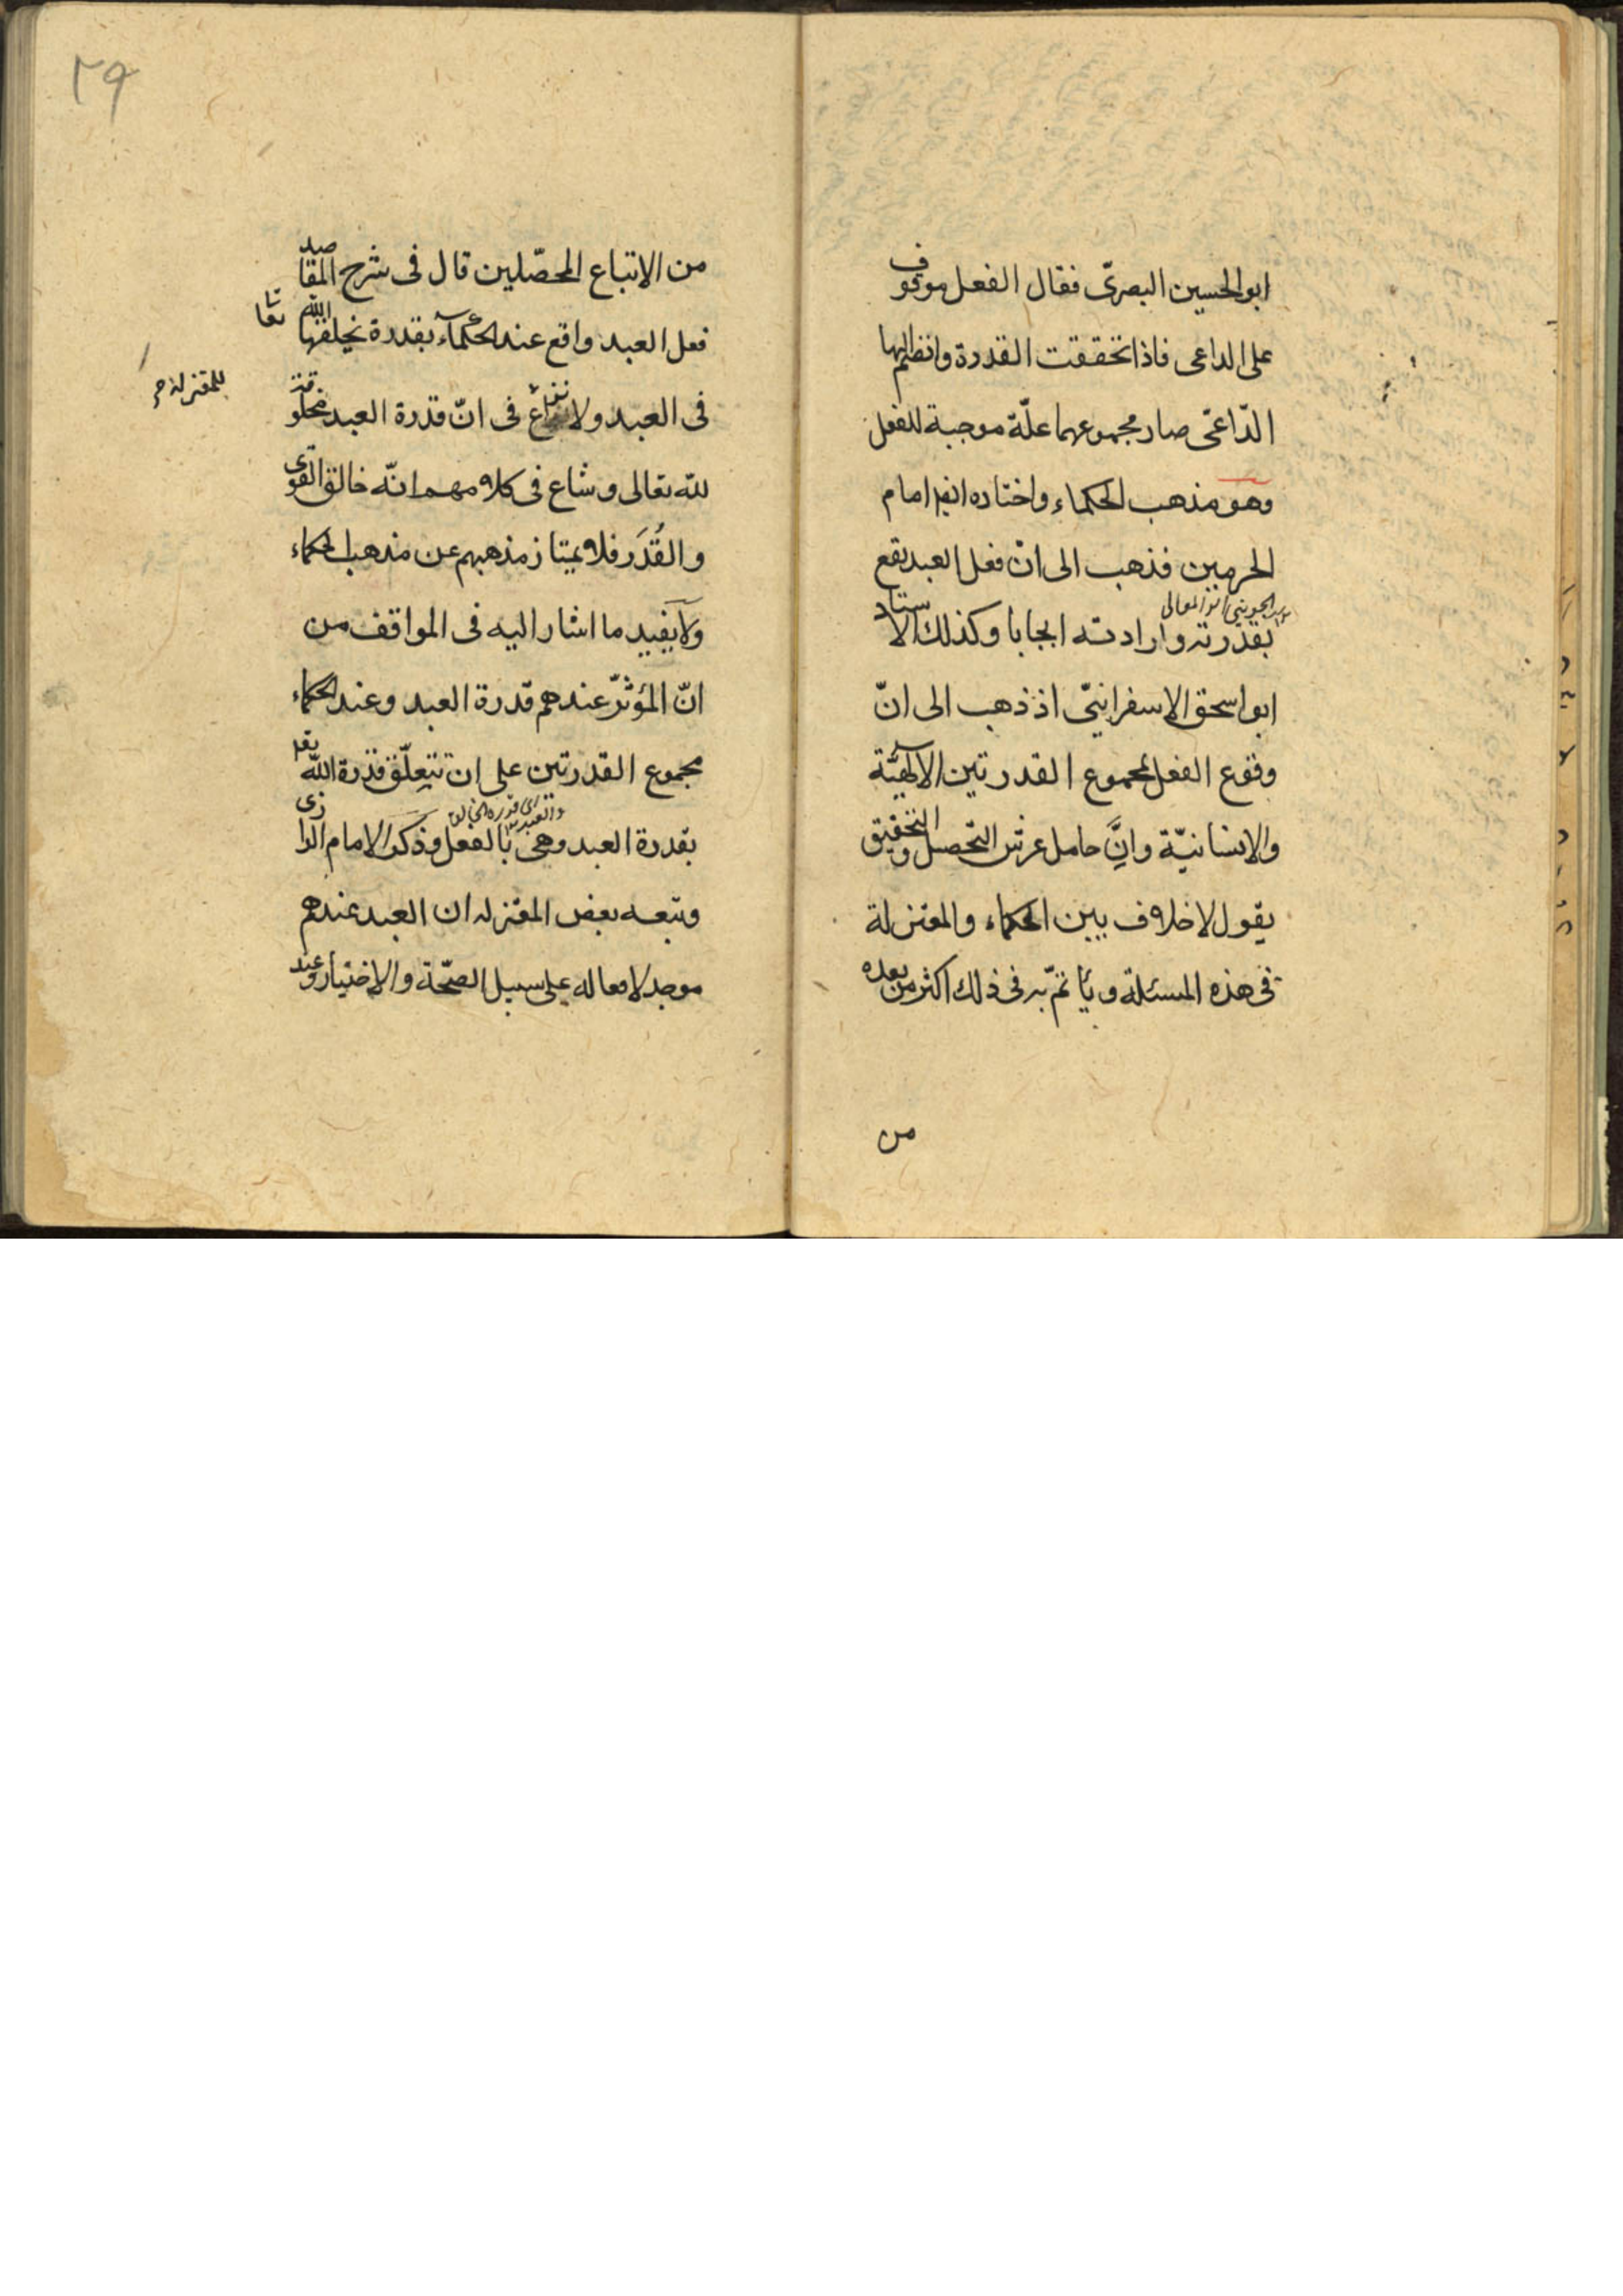 ابوالحسين البصرىّ فقال الفعل موقوف
على الداعى فاذا تحققت القدرة وانضم اليها
الدّاعى صار مجموعهما علّة موجبة للفعل
وهو مذهب الحكماء واختاره ايضا امام
الحرمين فذهب الى انّ فعل العبد يقع
الجوينى ابو المعالى
بقدرته وارادته ايجابا وكذلك الاستاد
ابو اسحق الاسفراينىّ اذ ذهب الى انّ
وقوع الفعل بمجموع القدرتين الالهيّة
والانسانيّة وانّ حامل عرش التحصيل والتحقيق
يقول لا خلاف بين الحكماء والمعتزلة
فى هذه المسئلة ويأتمّ به فى ذلك اكثر من بعده
من
٢٩
من الاتباع المحصّلين قال فى شرح المقاصد
فعل العبد واقع عند الحكمآء بقدرة يخلقها الله تعا
فى العبد ولا نزاع للمعتزلة فى انّ قدرة العبد مخلوقة
لله تعالى وشاع فى كلامهم انّه خالق القوى
والقُدَر فلا يمتاز مذهبهم عن مذهب الحكماء
ولا يفيد ما اشار اليه فى المواقف من
انّ المؤثّر عندهم قدرة العبد وعند الحكماء
مجموع القدرتين على ان تتعلّق قدرة الله تعا
بقدرة العبد وهى بالفعل وذكر الامام الرازى
وتبعه بعض المعتزله ان العبد عندهم
موجد لافعاله على سبيل الصحّة والاختيار وعند